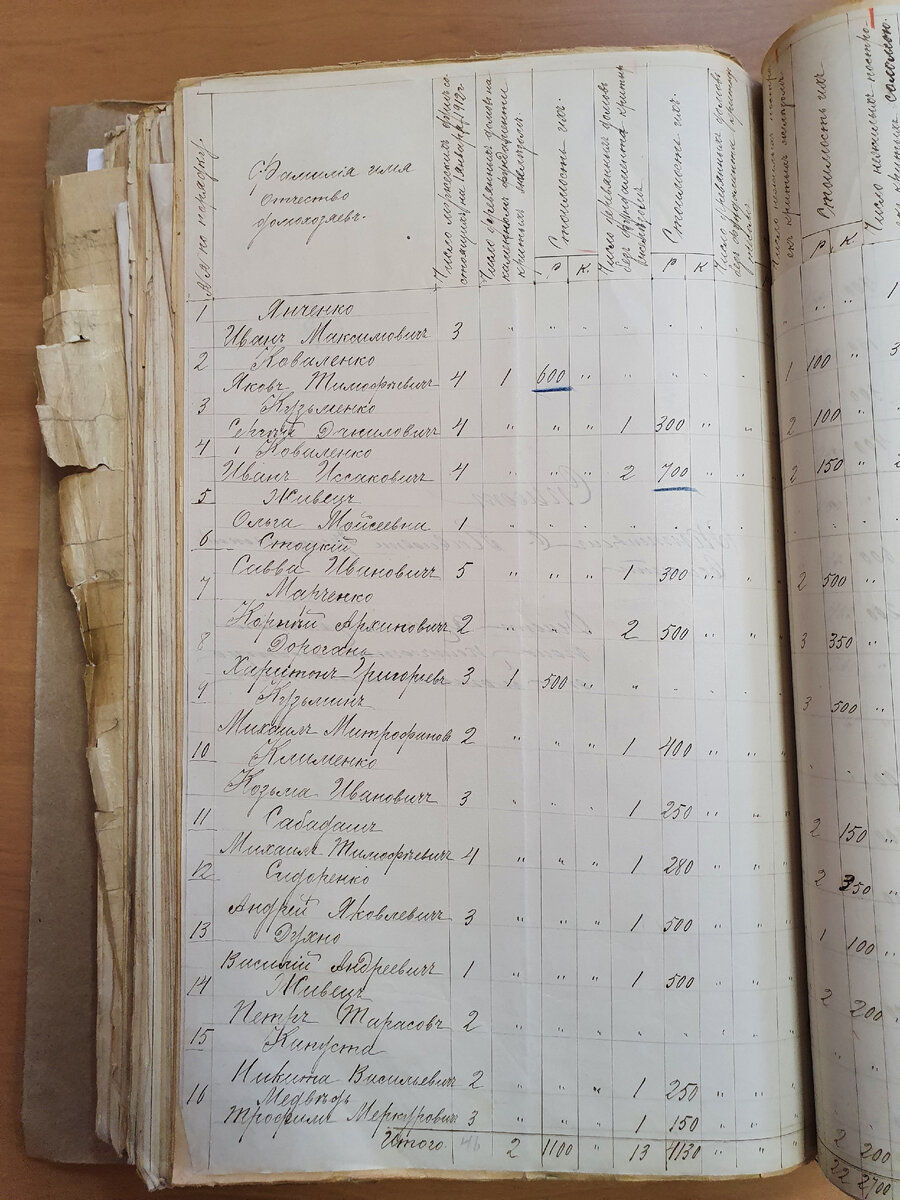 №№ по порядку.
Фамилія имя
отчество
домохозяевъ.
Число деревянныхъ домовъ на
каменномъ фундаментѣ
крытыхъ желѣзомъ
Стоимость ихъ.
Р К
Число деревянныхъ домовъ
безъ фундамента крытыхъ
Стоимость ихъ.
Р К
Число деревянныхъ домовъ
безъ фундамента
Стоимость ихъ
Р К
Число нежилыхъ постро-
екъ крытыхъ соломою.
1 Янченко
Иванъ Максимовичъ 3 " " " " " "
2 Коваленко
Яковъ Тимофѣевичъ 4 1 600 " " " " 1 100 "
3 Кузьменко
Сергѣй Даниловичъ 4 " " " 1 300 " " 2 100 "
4 Коваленко
Иванъ Иссаковичъ 4 " " " 2 700 " " 2 150 "
5 Живецъ
Ольга Мойсеевна 1 " " " " " "
6 Стоцкій
Савва Ивановичъ 5 " " " 1 300 " " 2 500 "
7 Марченко
Корнѣй Архиповичъ 2 " " " 2 500 " " 3 350 "
8 Дорогань
Харитонъ Григорьевъ 3 1 500 " " " " 3 500 "
9 Кузьминъ
Михаилъ Митрофановъ 2 " " " 1 400 " "
10 Клименко
Козьма Ивановичъ 3 " " " 1 250 " " 2 150 "
11 Сабадашъ
Михаилъ Тимофѣевичъ 4 " " " 1 280 " " 2 350 "
12 Сидоренко
Андрей Яковлевичъ 3 " " " 1 500 " " 1 100 "
13 Духно
Василій Андреевичъ 1 " " " 1 500 " " 2 200 "
14 Живецъ
Петръ Тарасовъ 2 " " " " " "
15 Капуста
Никита Васильевичъ 2 " " " 1 250 " "
16 Медвѣдь
Трофимъ Меркуровичъ 3 " " " 1 150 " " 2 200
Итого 46 2 1100 " 13 4130 " " 22 2700